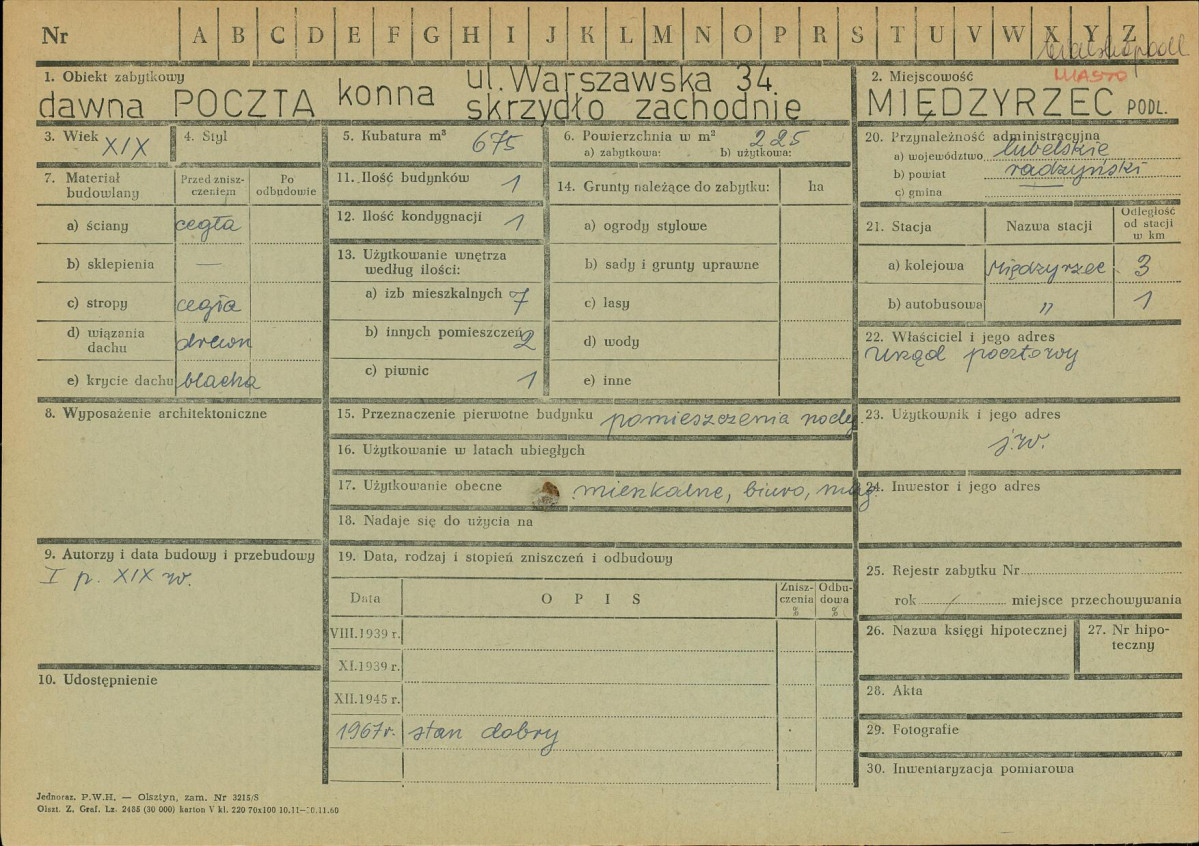 Nr A B C D E F G H I J K L M N O P R S T U V W X Y Z
MIASTO
1. Obiekt zabytkowy
dawna POCZTA konna ul. Warszawska 34
skrzydło zachodnie
2. Miejscowość
MIĘDZYRZEC PODL.
3. Wiek XIX
4. Styl
5. Kubatura m³ 675
6. Powierzchnia w m² 225
a) zabytkowa: b) użytkowa:
7. Materiał budowlany
Przed zniszczeniem
Po odbudowie
a) ściany cegła
b) sklepienia —
c) stropy cegła
d) wiązania dachu drewn
e) krycie dachu blacha
8. Wyposażenie architektoniczne
9. Autorzy i data budowy i przebudowy
I p. XIX w.
10. Udostępnienie
11. Ilość budynków 1
12. Ilość kondygnacji 1
13. Użytkowanie wnętrza
według ilości:
a) izb mieszkalnych 7
b) innych pomieszczeń 2
c) piwnic 1
14. Grunty należące do zabytku: ha
a) ogrody stylowe
b) sady i grunty uprawne
c) lasy
d) wody
e) inne
15. Przeznaczenie pierwotne budynku pomieszczenia
16. Użytkowanie w latach ubiegłych
17. Użytkowanie obecne mieszkalne, biuro, mag.
18. Nadaje się do użycia na
19. Data, rodzaj i stopień zniszczeń i odbudowy
Data OPIS Zniszczenia % Odbudowa %
VIII.1939 r.
XI.1939 r.
XII.1945 r.
1967r. stan dobry
20. Przynależność administracyjna
a) województwo lubelskie
b) powiat radzyński
c) gmina
21. Stacja Nazwa stacji Odległość od stacji w km
a) kolejowa Międzyrzec 3
b) autobusowa " 1
22. Właściciel i jego adres
Urząd pocztowy
23. Użytkownik i jego adres
j.w.
24. Inwestor i jego adres
25. Rejestr zabytku Nr
rok / miejsce przechowywania
26. Nazwa księgi hipotecznej
27. Nr hipoteczny
28. Akta
29. Fotografie
30. Inwentaryzacja pomiarowa
Jednoraz. P.W.H. — Olsztyn, zam. Nr 3215/S